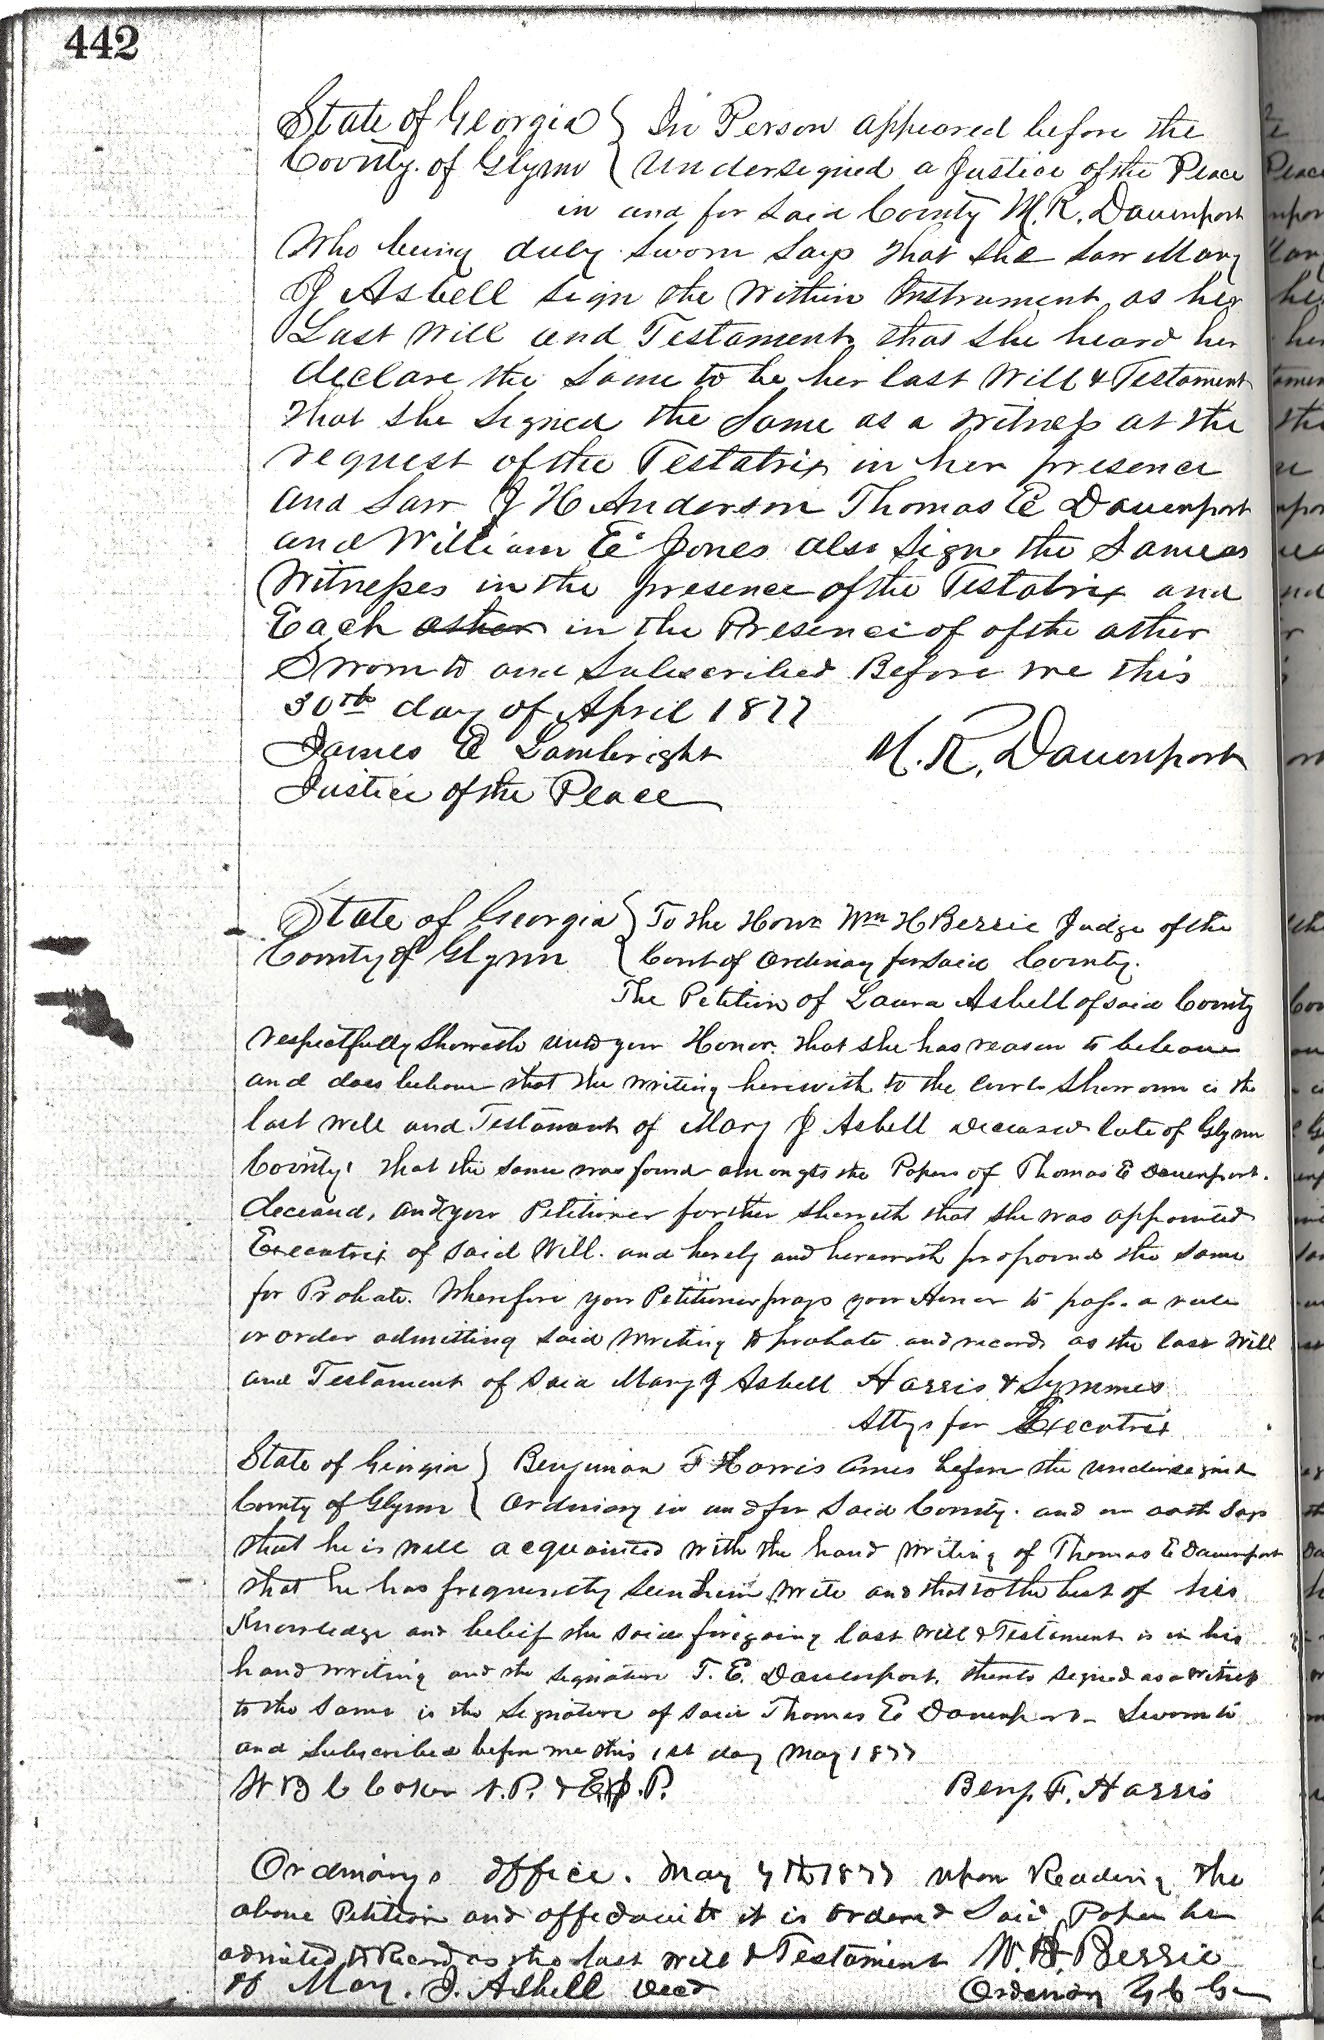 442
State of Georgia } In Person appeared before the
County of Glynn { undersigned a Justice of the Peace
in and for said County M. R. Davenport
Who being duly Sworn Says that she saw Mary
J Asbell sign the within Instrument as her
Last Will and Testament that she heard her
declare the same to be her last Will & Testament
that she signed the same as a witness at the
request of the Testatrix in her presence
and saw J H Anderson Thomas E Davenport
and William E Jones also sign the same as
Witnesses in the presence of the Testatrix and
Each other in the Presence of of the other
Sworn to and Subscribed Before me this
30th day of April 1877
James E Lambright M. R. Davenport
Justice of the Peace
State of Georgia } To the Honr Wm H Berrie Judge of the
County of Glynn { Court of Ordinary for said County.
The Petition of Laura Asbell of said County
respectfully Showeth unto your Honor. that she has reason to beleave
and does beleave that the writing herewith to the Court Shown is the
last will and Testament of Mary J Asbell deceased late of Glynn
County, that the same was found amongts the Papers of Thomas E Davenport.
deceased, and your Petitioner further sheweth that she was appointed
Executrix of said Will. and hereby and herewith propounds the same
for Probate. Wherefore your Petitioner prays your Honor to pass a rule
or order admitting said Writing to probate and record as the last Will
and Testament of said Mary J Asbell Harris & Symmes
Attys for Executrix
State of Georgia } Benjiman F Harris comes before the undersigned
County of Glynn { Ordinary in and for said County. and on oath says
that he is well acquainted with the hand writing of Thomas E Davenport
that he has frequently seen him write and that to the best of his
Knowledge and belief the said foregoing last will & Testament is in his
hand writing and the signature T. E. Davenport. thereto signed as a witness
to the same is the signature of said Thomas E Davenport Sworn to
and Subscribed before me this 1st day May 1877
W B C Coker N. P. & Ex J. P. Benj. F. Harris
Ordinarys office. May 7th 1877 upon Reading the
above Petition and affidavits it is ordered said Paper be
admited to Record as the last will & Testament W. H. Berrie
of May. J. Asbell decd Ordinary G C Ga